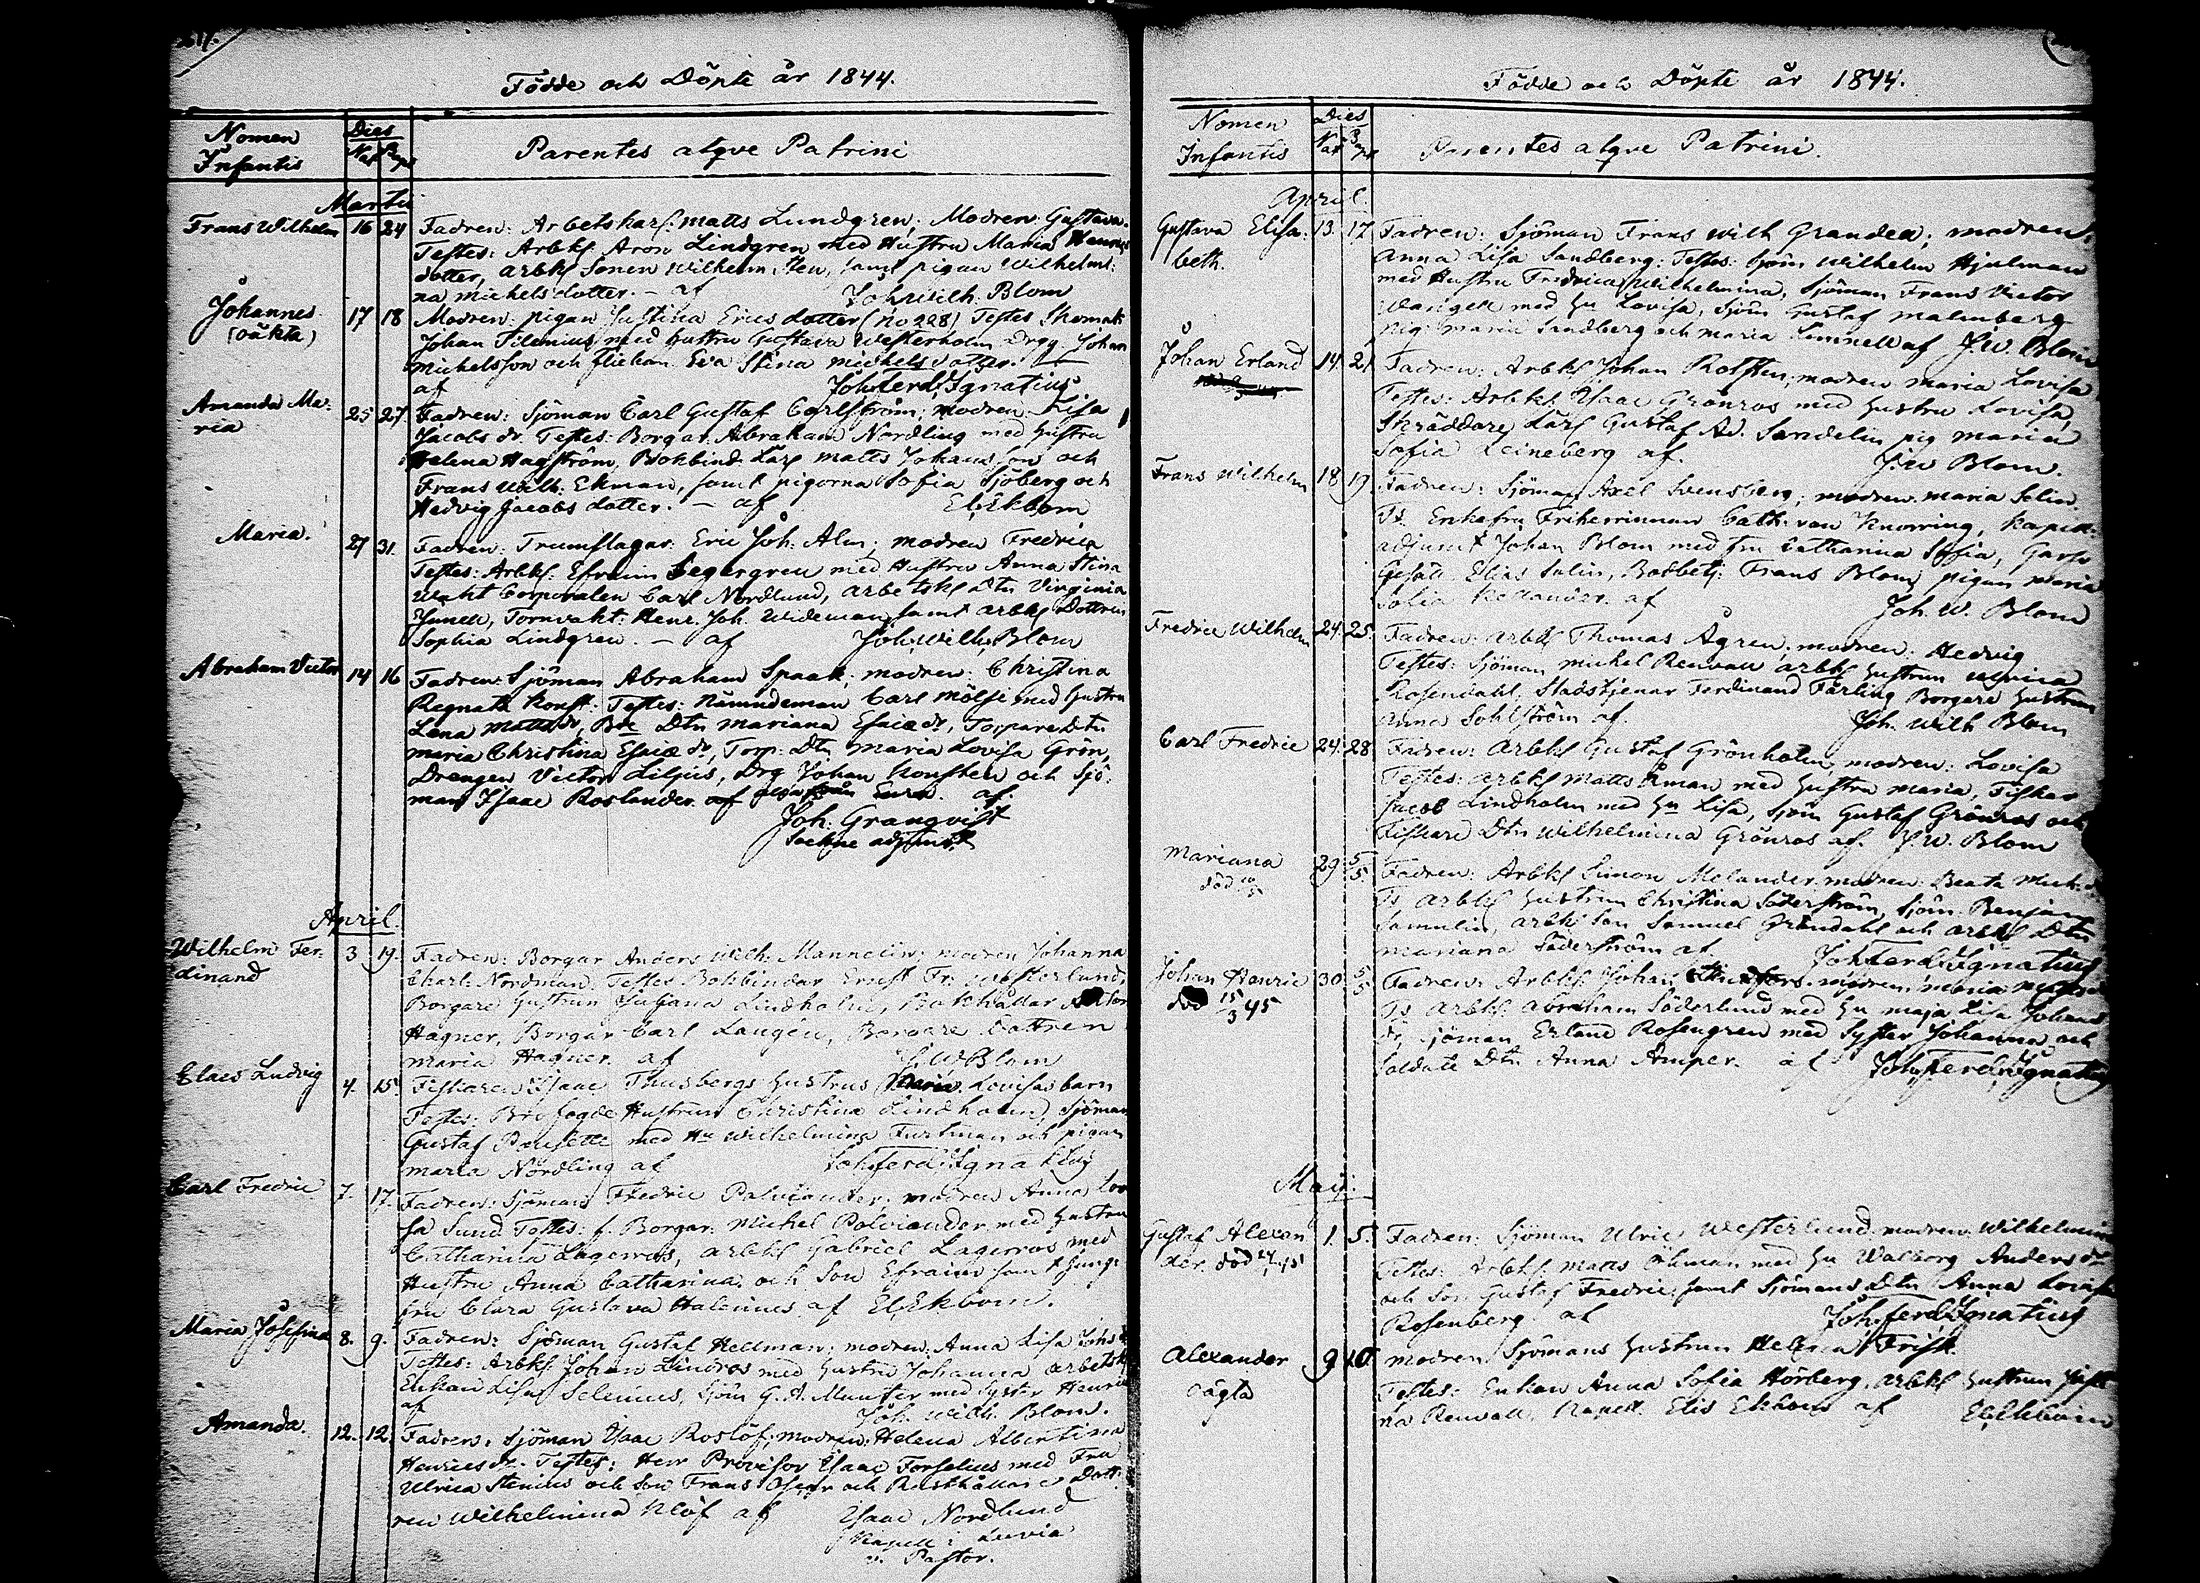 Födde och Döpte år 1844.
Nomen Infantis
Dies
Nat Bapt
Parentes atqve Patrini
Martii
Frans Wilhelm 16 24 Fadren: Arbetskarl: Matts Lundgren; Modren: Gustava.
Testes: Arbkl. Aron Lindgren med Hustru Maria
dotter, arbkl Sonen Wilhelm Sten, samt pigan Wilhelmi:
na Michels dotter. – af Joh: Wilh: Blom
Johannes 17 18 Modren: pigan Justina Erics dotter (No 228) Testes Skomak:
(oäkta) Johan Filenius med hustru Gustava Westerholm Drgg. Johan
Michelsson och flickan Eva Stina Michelsdotter.
af Joh: Ferd: Ignatius
Amanda Ma: 25 27 Fadren: Sjöman Carl Gustaf Carlström; modren: Lisa
ria Jacobs dr. Testes: Borgar: Abraham Nordling med hustru
Helena Hagström, Bokbind: Karl Matts Johans son och
Frans Wilh: Ekman, samt pigorna Sofia Sjöberg och
Hedvig Jacobs dotter. – af El. Ekbom
Maria. 27 31. Fadren: Trumslagar: Eric Joh: Alm; modren Fredrica
Testes: Arbkl: Efraim Segergren med Hustru Anna Stina
Wakt Corporalen Carl Nordlund, arbetskl Dtn Virginia
Junell, Tornvakt: Henr. Joh. Wideman samt arbkl Dottren
Sophia Lindgren. – af Joh: Wilh: Blom
Abraham Victor 14 16 Fadren: Sjöman Abraham Spaak; modren: Christina
Regnata Konst: Testes: Nämndeman Carl Mölsi med hustru
Lena Matts dr, Bde Dtn Mariana Esaiæ dr, Torpare Dtn
Maria Christina Esaiæ dr, Torp: Dtn Maria Lovisa Grön,
Drengen Victor Liljus, Drg Johan Konsten och Sjö:
man Isaac Roslander af
Joh: Granqvist
Sockne adjunct
April.
Wilhelm Fer: 3 19. Fadren: Borgar Anders Wilh: Mannelin; modren Johanna
dinand Charl: Nordman. Testes Bokbindar Ernst Fr: Westerlund,
Borgare hustrun Susana Lindholm, Bokhållar
Hagner, Borgar Carl Langen, Borgare Dottren
Maria Hagner. af J. W. Blom
Claes Ludvig 4. 15. Fiskaren Isaac Thusbergs hustrus Maria Lovisas barn
Testes: Brofogde Hustrun Christina Lindholm, Sjöman
Gustaf med Hu Wilhelmina Furtman och pigan
Maria Nordling af Joh: Ferd: Ignatius
Carl Fredric 7. 17. Fadren: Sjöman Fredric Palviander; modren Anna Lov
sa Sund Testes: f. Borgar: Michel Polviander med hustru
Catharina Lagerros, arbkl Gabriel Lagerros med
Hustru Anna Catharina och Son Efraim samt Jung:
fru Clara Gustava Halenius af El. Ekbom.
Maria Josefina 8. 9. Fadren: Sjöman Gustaf Hellman; modren: Anna Lisa Johs dr
Testes: Arbkl. Johan Lindros med hustru Johanna arbetskl
Enkan Lisa Selenius, Sjöm G. A. Munster med Syster Henrica
af Joh: Wilh: Blom.
Amanda. 12. 12. Fadren: Sjöman Isaac Roslöf; modren: Helena Albertina
Henrics dr. Testes: Herr Provisor Isaac Forselius med Fru
Ulrica Stenius och Son Frans Oscar och Rusthållare Dott:
ren Wilhelmina Klöf af Isaac Nordlund
Kapell: i Luvia
v. Pastor.
Födde och Döpte år 1844.
Nomen Infantis
Dies
Nat Bapt
Parentes atqve Patrini.
April.
Gustava Elisa: 13. 17. Fadren: Sjöman Frans Wilh Grandell; modren:
beth. Anna Lisa Sandberg: Testes: Sjöm Wilhelm Hjulman
med Hustru Fredrica Wilhelmina, Sjöman Frans Victor
Wangell med Hu Lovisa, Sjöm Gustaf Malmberg
Pig: Maria Sandberg och Maria Kunnell af J. W. Blom
Johan Erland 14. 21. Fadren: Arbkl Johan Rolsten; modren Maria Lovisa
Testes: Arbkl. Isaac Grönros med hustru Lovisa,
Skräddare Karl Gustaf Ad. Sandelin pig Maria
Sofia Leineberg af. J. W Blom.
Frans Wilhelm 18 19. Fadren: Sjöman Axel Svensberg; modren: Maria Salin.
Ts Enkefru Friherrinnan Cath: von Knorring, Kapell:
adjunct Johan Blom med fru Catharina Sofia, Garfv
Gesäll Elias Salin, Bodbetj: Frans Blom, pigan Maria
Sofia Kellander. af Joh. W. Blom
Fredric Wilhelm 24. 25. Fadren: arbkl Thomas Ågren, modren: Hedvig
Testes: Sjöman Michel Renvall arbkl hustrun Ulrica
Rosendahl, Stadstjenar Ferdinand Färling Borgare hustrun
Anna Sohlström af. Joh. Wilh Blom
Carl Fredric 24. 28. Fadren: Arbkl Gustaf Grönholm, modren: Lovisa
Testes: Arbkl Matts Åman med hustru Maria, Fiskar
Jacob Lindholm med Hu Lisa, Sjöm Gustaf Grönros och
Fiskare Dtn Wilhelmina Grönros af. J. W. Blom
Mariana 29. 5/5. Fadren: Arbkl Simon Molander modren: Beata Mich: dr
död Ts Arbkl hustrun Christina Söderström, Sjöm: Benjam:
Samulin, arbk: Son Samuel Gröndahl och arbkl Dtn
Mariana Söderström af Joh: Ferd: Ignatius
Johan Henric 30. 5/5 Fadren: Arbkl. Johan modren: Maria
död 15/3 45 Ts Arbkl. Abraham Söderlund med Hu Maja Lisa Johans
dr, Sjöman Erland Rosengren med Syster Johanna och
Soldate Dtn Anna Amper. af Joh: Ferd: Ignatius
Maij.
Gustaf Alexan 1. 5. Fadren: Sjöman Ulric Westerlund modren: Wilhelmina
der. död Testes: Arbkl Matts Öhman med Hu Walborg Anders dr
och Son Gustaf Fredric samt Sjömans Dtn Anna Lovisa
Rosenberg af Joh: Ferd: Ignatius
Alexander 9 10. modren Sjömans hustrun Helena Frisk
oägta Testes: Enkan Anna Sofia Hörberg, arbkl hustrun
na Renvall, Kapell. Elis Ekbom af El. Ekbom